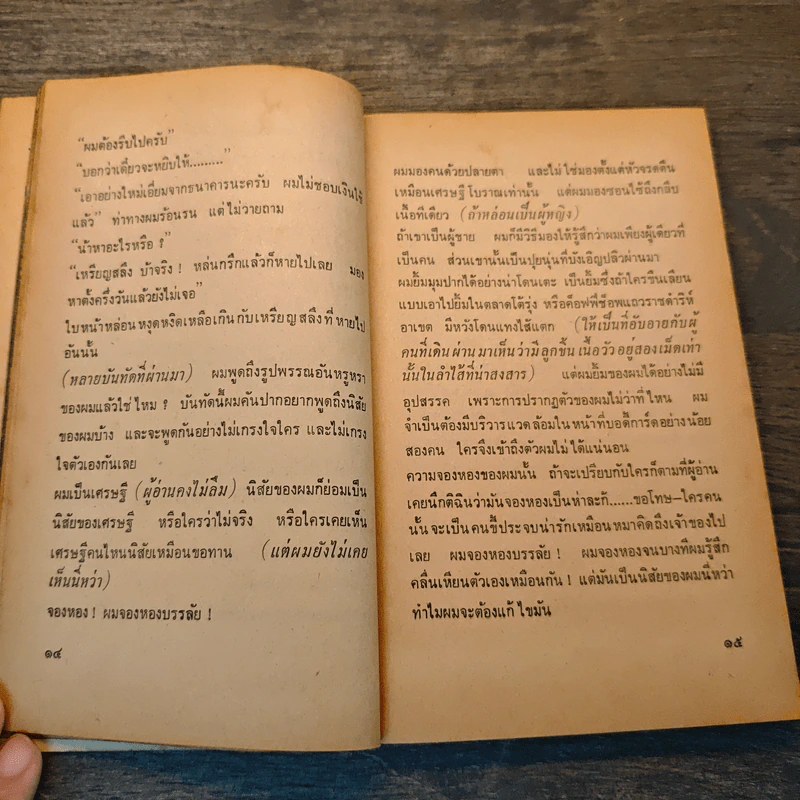 “ผมต้องรีบไปครับ”
“บอกว่าเดี๋ยวจะหยิบให้.........”
“เอาอย่างใหม่เอี่ยมจากธนาคารนะครับ ผมไม่ชอบเงินใช้
แล้ว” ท่าทางผมร้อนรน แต่ไม่วายถาม
“น้าหาอะไรหรือ ?”
“เหรียญสลึง บ้าจริง ! หล่นกริ๊กแล้วก็หายไปเลย มอง
หาตั้งครึ่งวันแล้วยังไม่เจอ”
ใบหน้าหล่อนหงุดหงิดเหลือเกินกับเหรียญสลึงที่หายไป
อันนั้น
(หลายบันทัดที่ผ่านมา) ผมพูดถึงรูปพรรณอันหรูหรา
ของผมแล้วใช่ไหม ? บันทัดนี้ผมคันปากอยากพูดถึงนิสัย
ของผมบ้าง และจะพูดกันอย่างไม่เกรงใจใคร และไม่เกรง
ใจตัวเองกันเลย
ผมเป็นเศรษฐี (ผู้อ่านคงไม่ลืม) นิสัยของผมก็ย่อมเป็น
นิสัยของเศรษฐี หรือใครว่าไม่จริง หรือใครเคยเห็น
เศรษฐีคนไหนนิสัยเหมือนขอทาน (แต่ผมยังไม่เคย
เห็นนี่หว่า)
จองหอง ! ผมจองหองบรรลัย !
๑๔
ผมมองคนด้วยปลายตา และไม่ใช่มองตั้งแต่หัวจรดตีน
เหมือนเศรษฐีโบราณเท่านั้น แต่ผมมองชอนไชถึงกลีบ
เนื้อทีเดียว (ถ้าหล่อนเป็นผู้หญิง)
ถ้าเขาเป็นผู้ชาย ผมก็มีวิธีมองให้รู้สึกว่าผมเพียงผู้เดียวที่
เป็นคน ส่วนเขานั้นเป็นปุยนุ่นที่บังเอิญปลิวผ่านมา
ผมยิ้มมุมปากได้อย่างน่าโดนเตะ เป็นยิ้มซึ่งถ้าใครขืนเลียน
แบบเอาไปยิ้มในตลาดโต้รุ่ง หรือค็อฟฟี่ช็อพแถวราชดำริห์
อาเขต มีหวังโดนแทงไส้แตก (ให้เป็นที่อับอายกับผู้
คนที่เดินผ่านมาเห็นว่ามีลูกชิ้นเนื้อวัวอยู่สองเม็ดเท่า
นั้นในลำไส้ที่น่าสงสาร) แต่ผมยิ้มของผมได้อย่างไม่มี
อุปสรรค เพราะการปรากฏตัวของผมไม่ว่าที่ไหน ผม
จำเป็นต้องมีบริวารแวดล้อมในหน้าที่บอดี้การ์ดอย่างน้อย
สองคน ใครจึงเข้าถึงตัวผมไม่ได้แน่นอน
ความจองหองของผมนั้น ถ้าจะเปรียบกับใครก็ตามที่ผู้อ่าน
เคยนึกติฉินว่ามันจองหองเป็นห่าละก้......ขอโทษ—ใครคน
นั้นจะเป็นคนขี้ประจบน่ารักเหมือนหมาคิดถึงเจ้าของไป
เลย ผมจองหองบรรลัย ! ผมจองหองจนบางทีผมรู้สึก
คลื่นเหียนตัวเองเหมือนกัน ! แต่มันเป็นนิสัยของผมนี่หว่า
ทำไมผมจะต้องแก้ไขมัน
๑๕